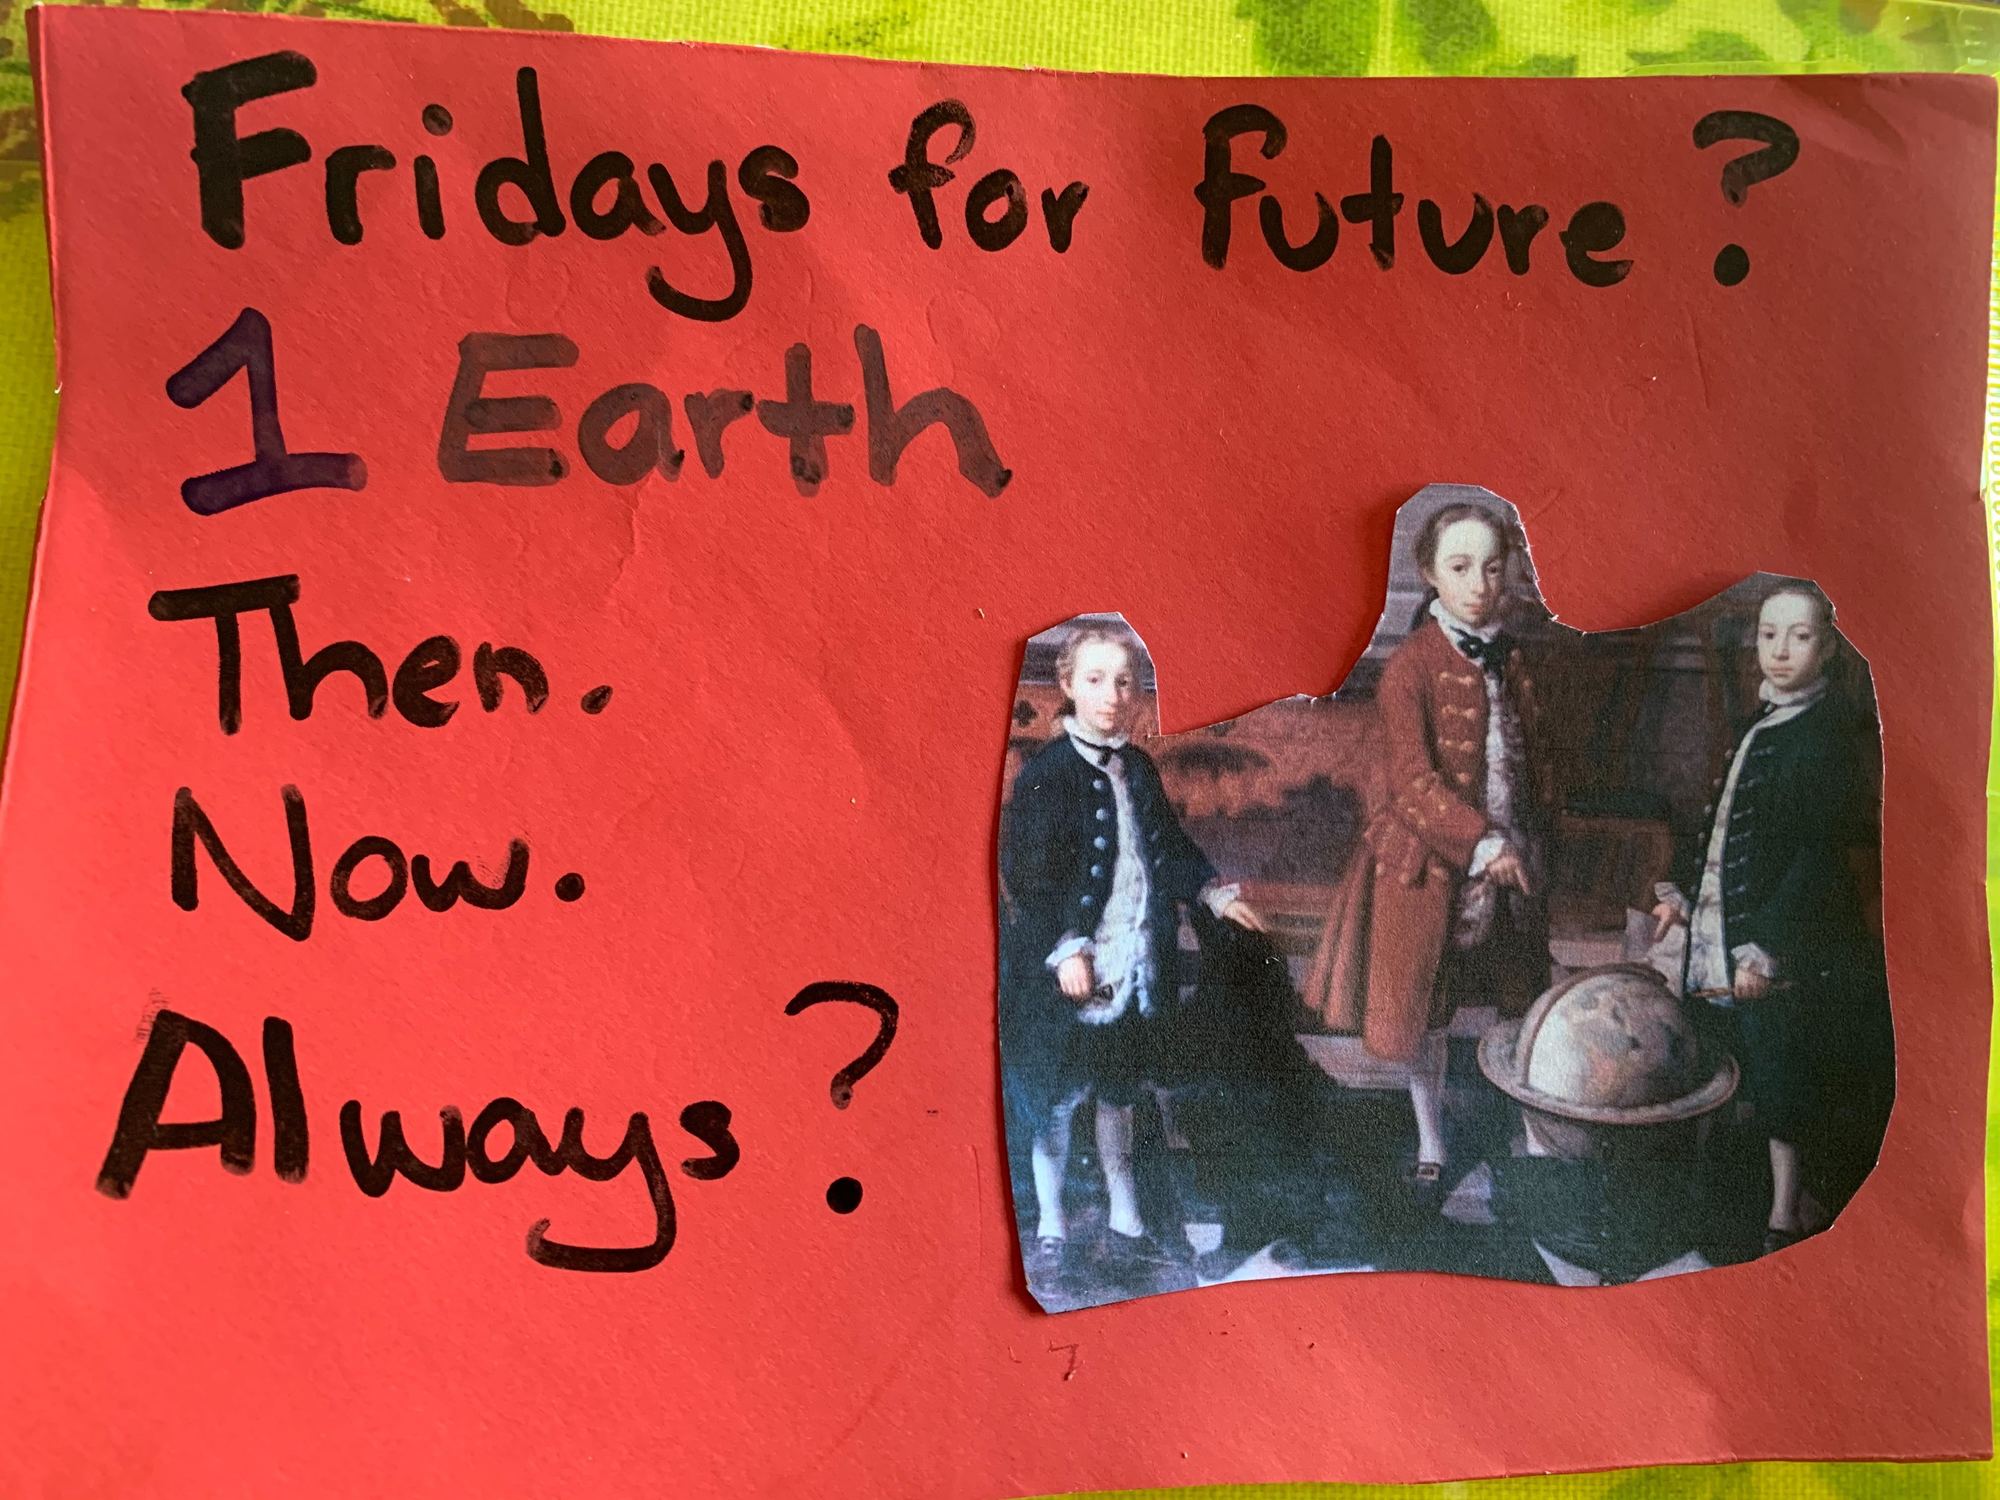 Fridays for future?
1 Earth
Then.
Now.
Always?